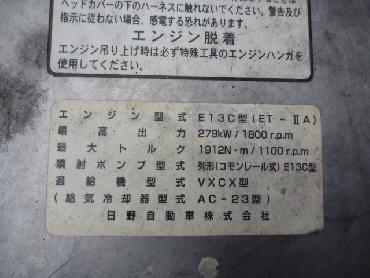 ヘッドカバーの下のハーネスに触れないでください。警告及び
指示に従わない場合、感電する恐れがあります。
エンジン脱着
エンジン吊り上げ時は必ず特殊工具のエンジンハンガを
使用してください。
エンジン型式 E13C型(ET-ⅡA)
最高出力 279kW/1800r.p.m
最大トルク 1912N-m/1100r.p.m
噴射ポンプ型式 列形(コモンレール式)E13C型
過給機型式 VXCX型
(給気冷却器型式 AC-23型)
日野自動車株式会社